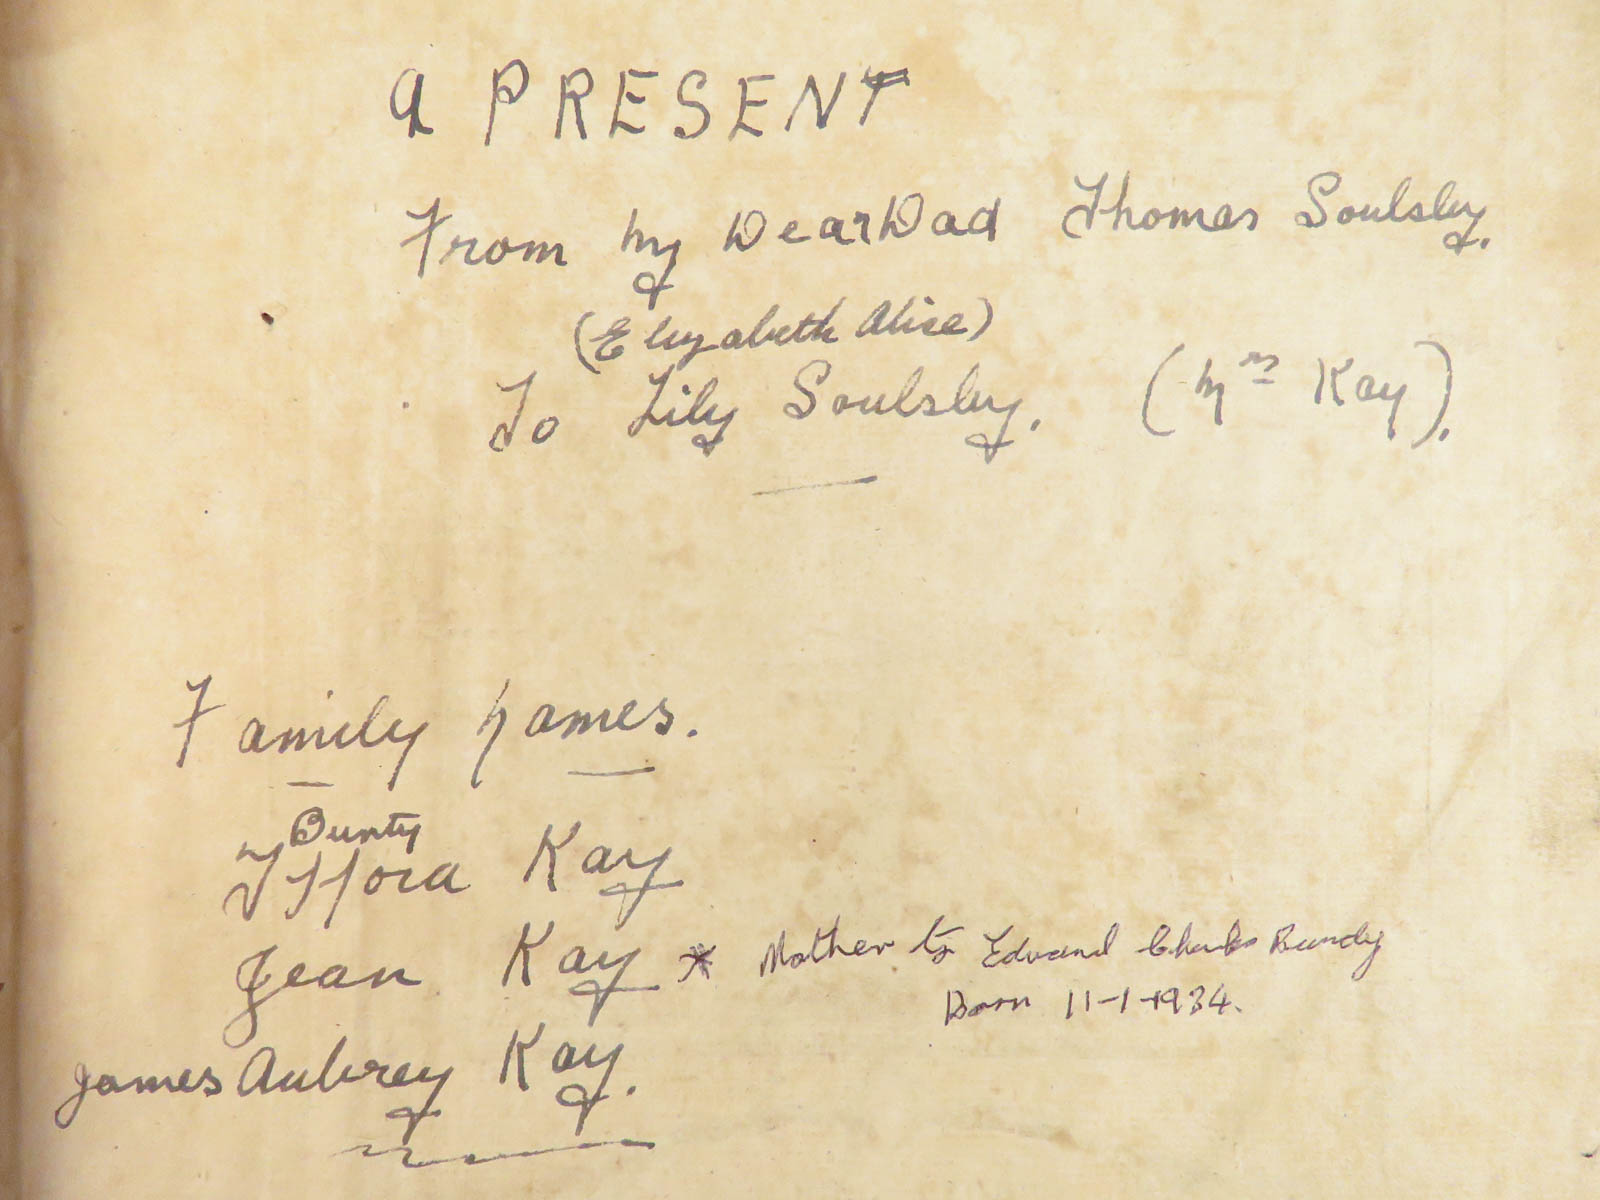 A PRESENT
From My Dear Dad Thomas Soulsby.
(Elizabeth Alice)
To Lily Soulsby. (Mrs Kay).
Family Names.
Bunty
Kay
Jean Kay * Mother to Edward Charles Bundy
Born 11-1-1934.
James Aubrey Kay.